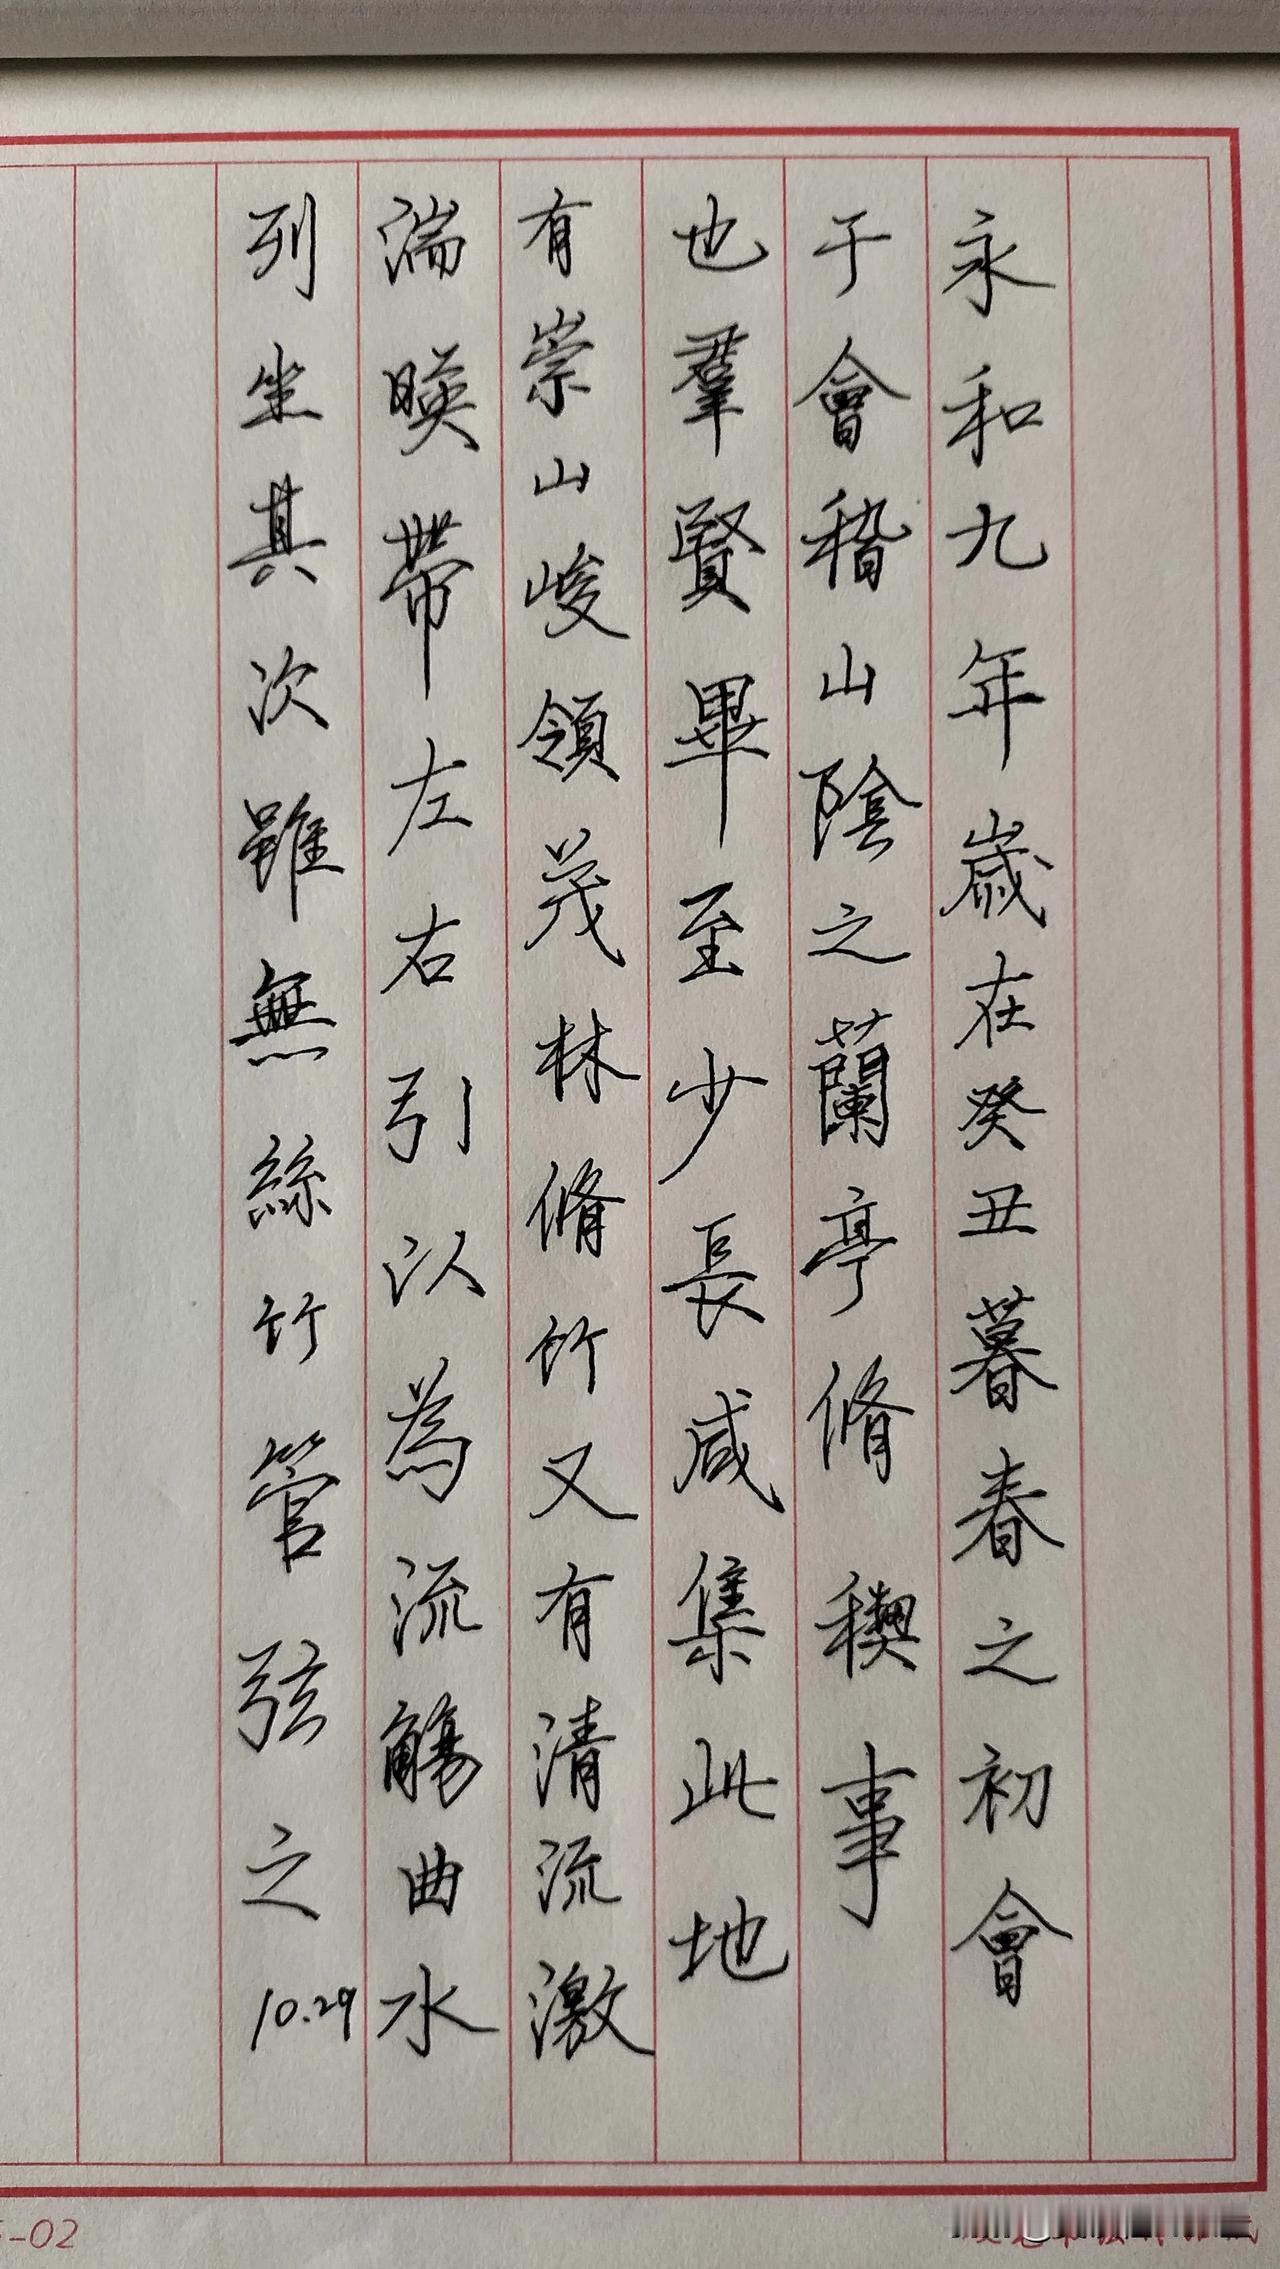 永和九年歲在癸丑暮春之初會
于會稽山陰之蘭亭脩稧事
也羣賢畢至少長咸集此地
有崇山峻領茂林脩竹又有清流激
湍暎帶左右引以為流觴曲水
列坐其次雖無絲竹管弦之
10.29
-02